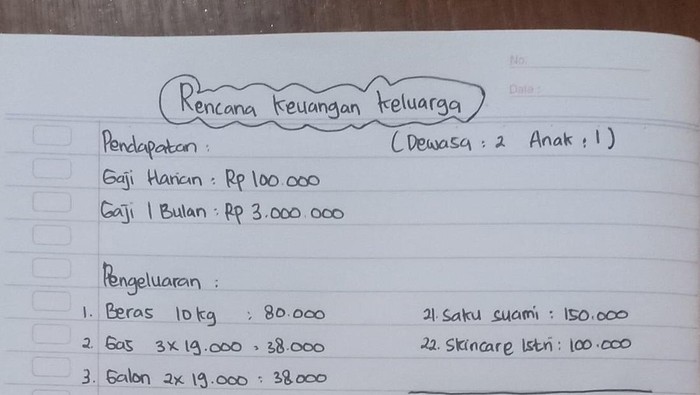 No:
Date:
Rencana Keuangan Keluarga
Pendapatan :
(Dewasa : 2 Anak : 1)
Gaji Harian : Rp 100.000
Gaji 1 Bulan : Rp 3.000.000
Pengeluaran :
1. Beras 10 kg : 80.000
2. Gas 3 x 19.000 = 38.000
3. Galon 2x 19.000 = 38.000
21. Saku suami : 150.000
22. Skincare Istri : 100.000